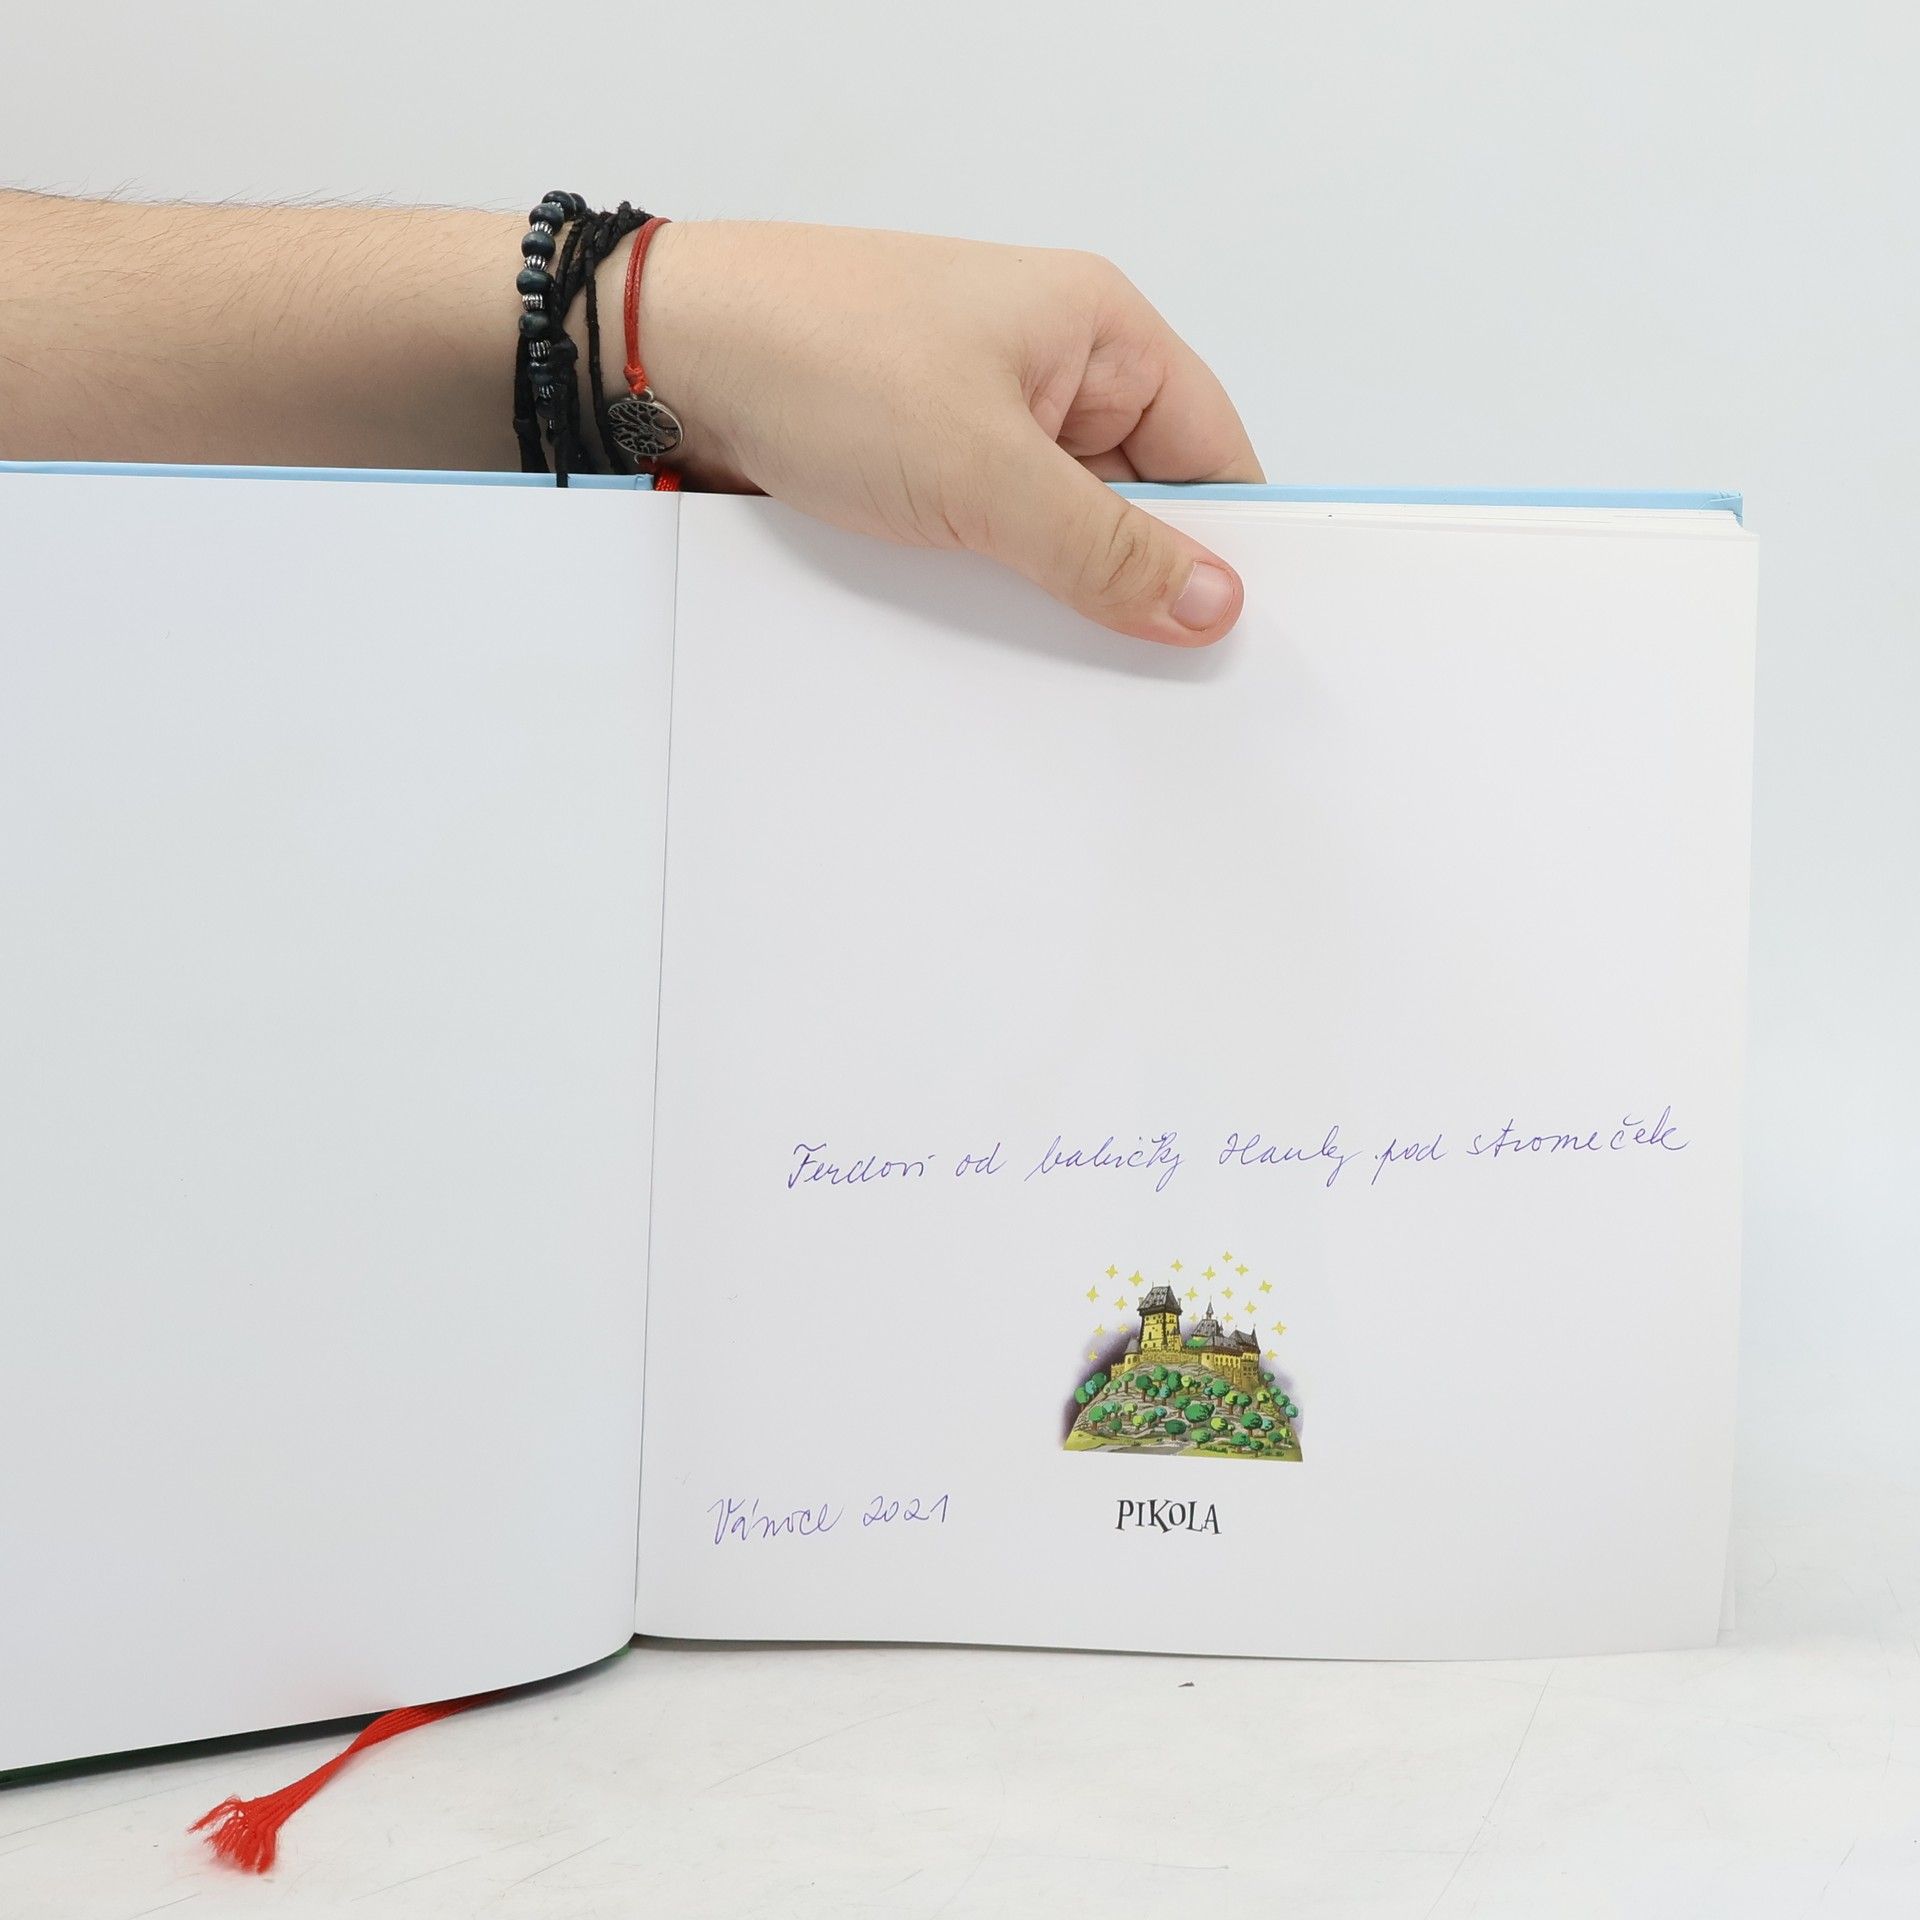 Ferdovi od babičky Hanky pod stromeček
Vánoce 2021
PIKOLA